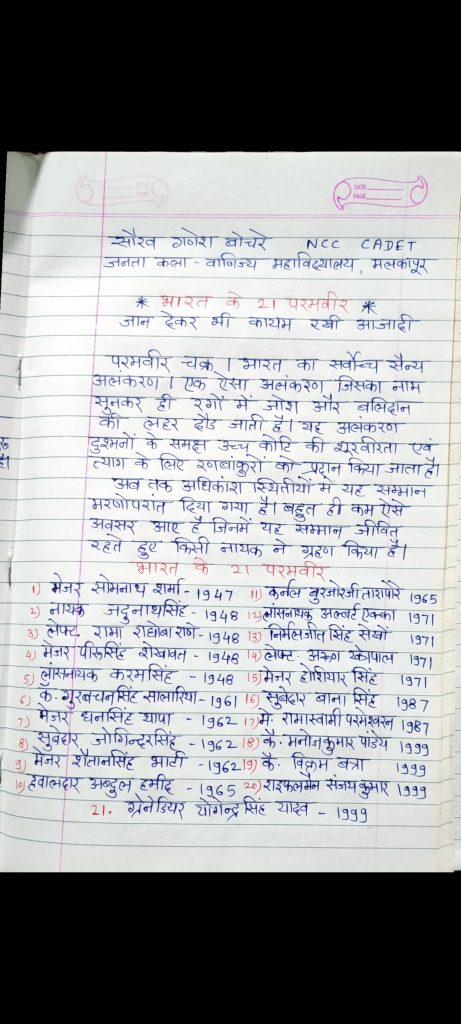 DATE
PAGE
सौरव गणेश बोचरे NCC CADET
जनता कला - वाणिज्य महाविद्यालय, मलकापूर
* भारत के 21 परमवीर *
जान देकर भी कायम रखी आजादी
परमवीर चक्र । भारत का सर्वोच्च सैन्य
अलंकरण । एक ऐसा अलंकरण जिसका नाम
सुनकर ही रगों में जोश और बलिदान
की लहर दौड जाती है। यह अलंकरण
दुश्मनों के समक्ष उच्च कोटि की शूरवीरता एवं
त्याग के लिए रणबांकुरों को प्रदान किया जाता है।
अब तक अधिकांश स्थितीयों में यह सम्मान
मरणोपरांत दिया गया है। बहुत ही कम ऐसे
अवसर आए है जिनमें यह सम्मान जीवित
रहते हुए किसी नायक ने ग्रहण किया है।
भारत के 21 परमवीर
1) मेजर सोमनाथ शर्मा - 1947 11) कर्नल बुरजोरजी तारापोरे 1965
2) नायक जदुनाथसिंह - 1948 12) लांसनायक अल्बर्ट एक्का 1971
3) लेफ्ट. रामा राघोबा राणे - 1948 13) निर्मलजीत सिंह सेखों 1971
4) मेजर पीरूसिंह शेखावत - 1948 14) लेफ्ट. अरूण खेत्रपाल 1971
5) लांसनायक करमसिंह - 1948 15) मेजर होशियार सिंह 1971
6) कॅ. गुरबचनसिंह सालारिया - 1961 16) सुबेदार बाना सिंह 1987
7) मेजर धनसिंह थापा - 1962 17) मे. रामास्वामी परमेश्वरन 1987
8) सुबेदार जोगिन्दरसिंह - 1962 18) कॅ. मनोजकुमार पांडेय 1999
9) मेजर शैतानसिंह भाटी - 1962 19) कॅ. विक्रम बत्रा 1999
10) हवालदार अब्दुल हमीद - 1965 20) राइफलमैन संजयकुमार 1999
21. ग्रेनेडियर योगेन्द्र सिंह यादव - 1999